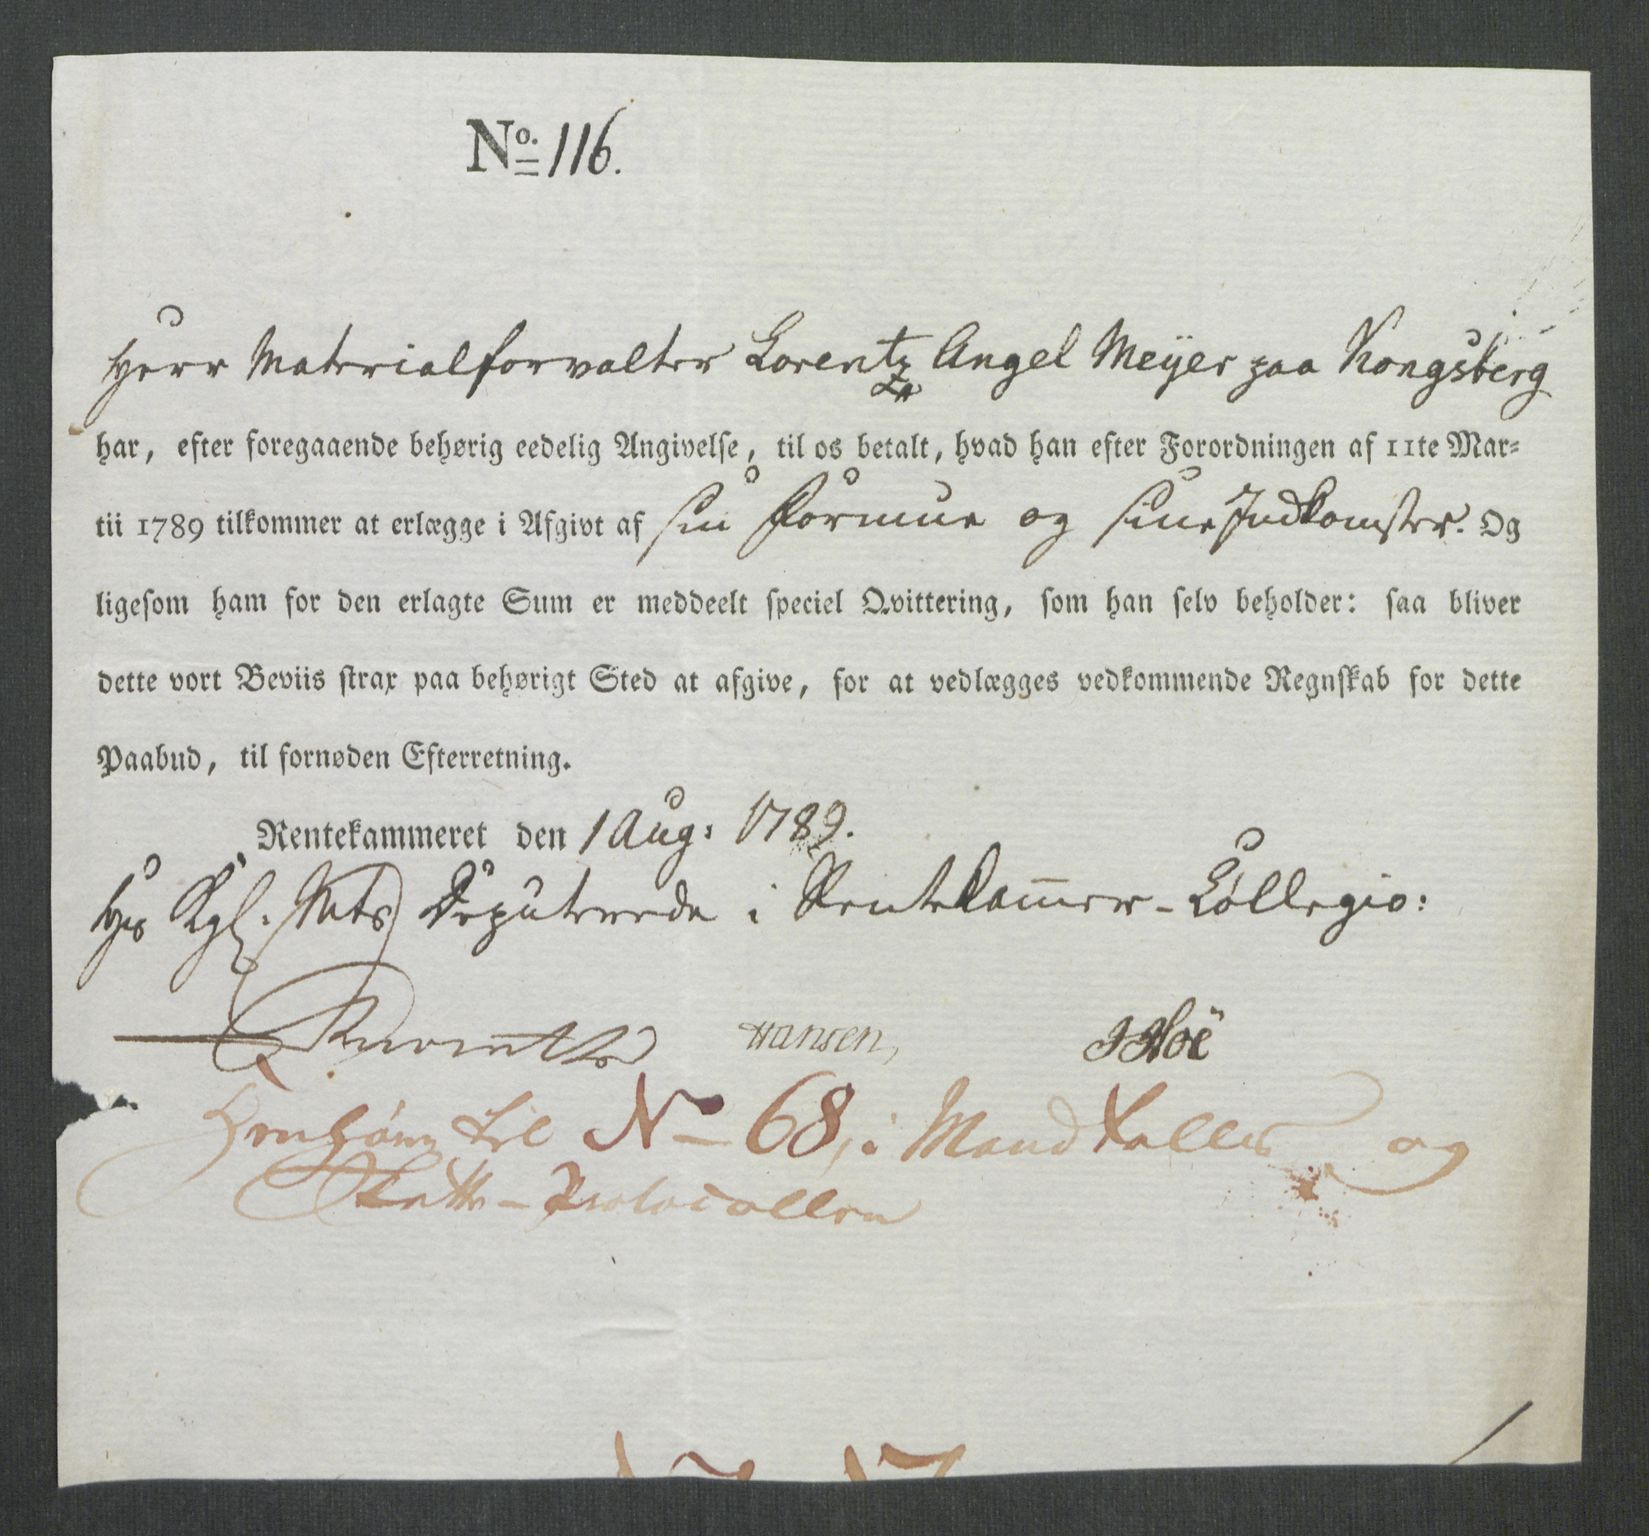 No. 116.
Herr Materialforvalter Lorentz Angel Meyer paa Kongsberg
har, efter foregaaende behørig eedelig Angivelse, til os betalt, hvad han efter Forordningen af 11te Mar-
tii 1789 tilkommer at erlægge i Afgivt af sin Formue og sine Indkomster. Og
ligesom ham for den erlagte Sum er meddeelt speciel Qvittering, som han selv beholder: saa bliver
dette vort Beviis strax paa behørigt Sted at afgive, for at vedlægges vedkommende Regnskab for dette
Paabud, til fornøden Efterretning.
Rentekammeret den 1 Aug: 1789.
Hs Kgl. Mts Deputerede i Rentekammer-Collegio:
Hansen,
Henhører til No 68, i Mandtallet og
Skatte-Protocollen